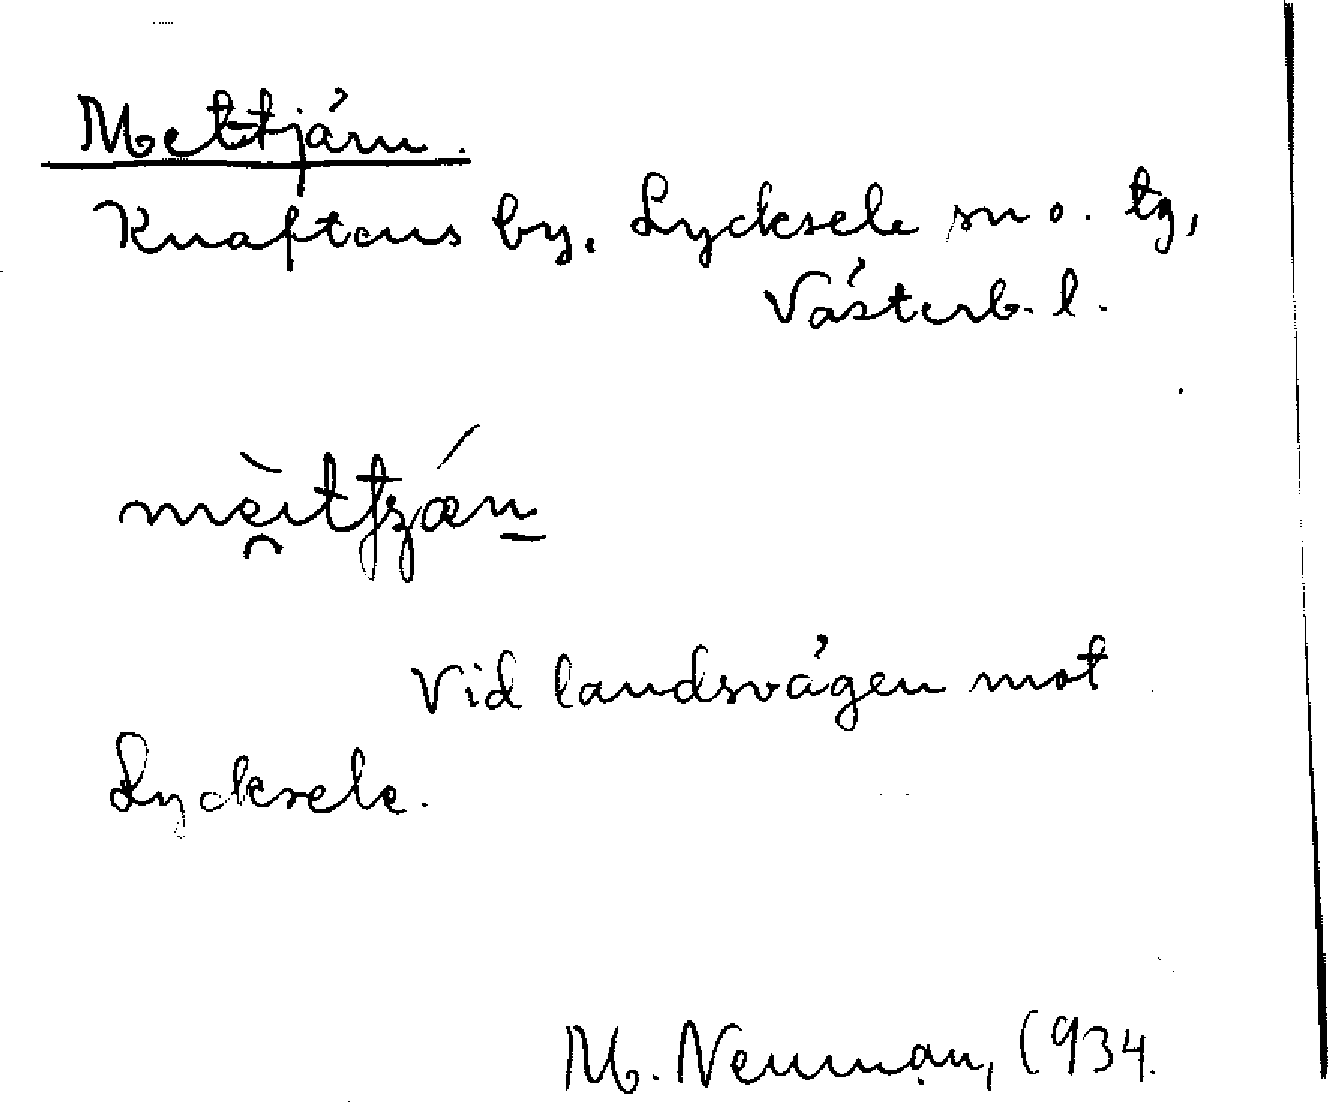 Mettjärn.
Knaftens by, Lycksele sn o. tg,
Västerb. l.
Vid landsvägen mot
Lycksele.
M. Neuman, 1934.